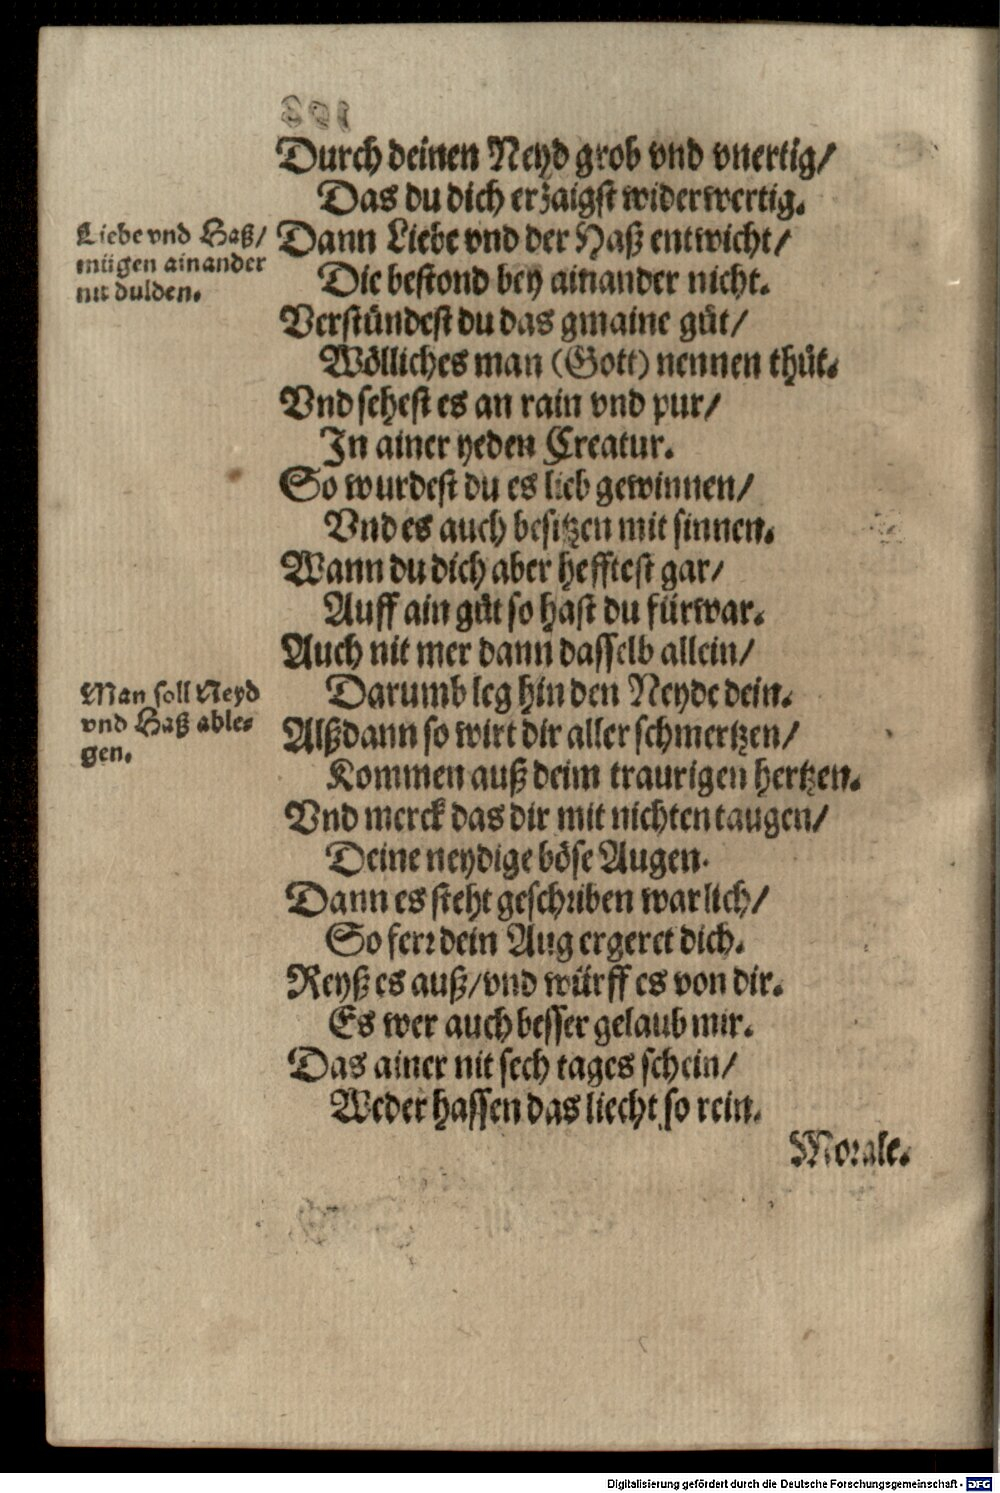 Durch deinen Neyd grob vnd vnertig/
Das du dich erzaigst widerwertig.
Liebe vnd Haß/
mügen ainander
nit dulden.
Dann Liebe vnd der Haß entwicht/
Die bestond bey ainander nicht.
Verstündest du das gmaine gůt/
Wölliches man (Gott) nennen thůt.
Vnd sehest es an rain vnd pur/
In ainer yeden Creatur.
So wurdest du es lieb gewinnen/
Vnd es auch besitzen mit sinnen.
Wann du dich aber hefftest gar/
Auff ain gůt so hast du fürwar.
Auch nit mer dann dasselb allein/
Man soll Neyd
vnd Haß able-
gen.
Darumb leg hin den Neyde dein.
Alßdann so wirt dir aller schmertzen/
Kommen auß deim traurigen hertzen.
Vnd merck das dir mit nichten taugen/
Deine neydige böse Augen.
Dann es steht geschriben warlich/
So ferr dein Aug ergeret dich.
Reyß es auß/vnd würff es von dir.
Es wer auch besser gelaub mir.
Das ainer nit sech tages schein/
Weder hassen das liecht so rein.
Morale.
Digitalisierung gefördert durch die Deutsche Forschungsgemeinschaft - DFG